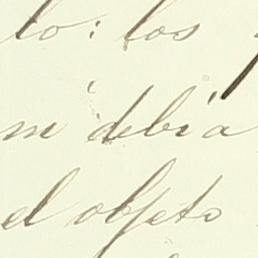 to: los
ni debia
el objeto